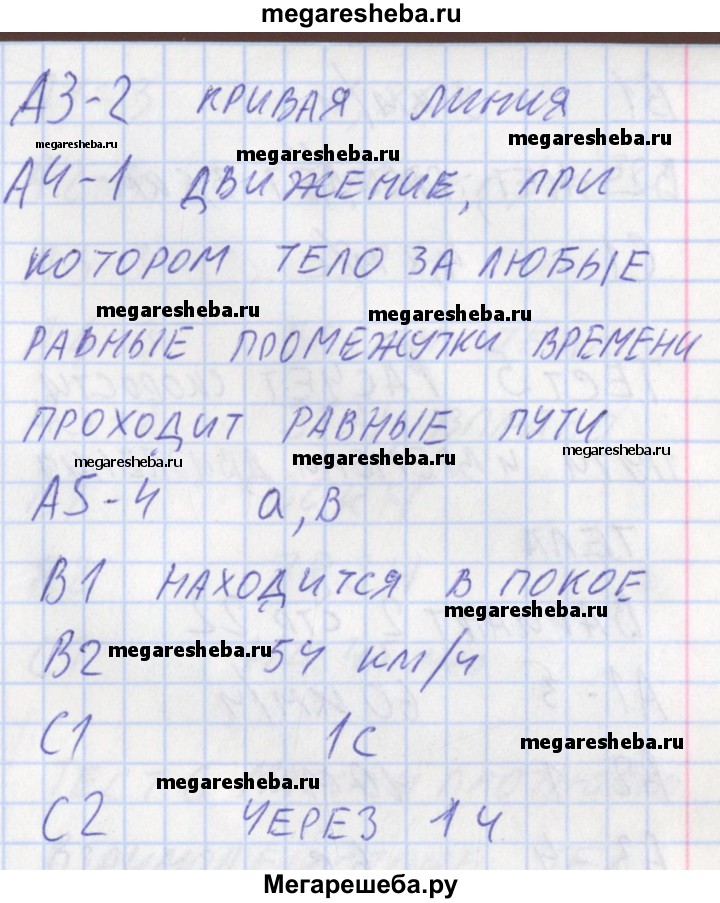 megaresheba.ru
А3-2 КРИВАЯ ЛИНИЯ
megaresheba.ru megaresheba.ru megaresheba.ru
А4-1 ДВИЖЕНИЕ, ПРИ
КОТОРОМ ТЕЛО ЗА ЛЮБЫЕ
megaresheba.ru megaresheba.ru
РАВНЫЕ ПРОМЕЖУТКИ ВРЕМЕНИ
ПРОХОДИТ РАВНЫЕ ПУТИ
megaresheba.ru megaresheba.ru megaresheba.ru
А5-4 а, в
В1 НАХОДИТСЯ В ПОКОЕ
megaresheba.ru
В2 megaresheba.ru 54 км/ч
С1 1с
megaresheba.ru
megaresheba.ru
С2 ЧЕРЕЗ 1 ч
Мегарешеба.ру